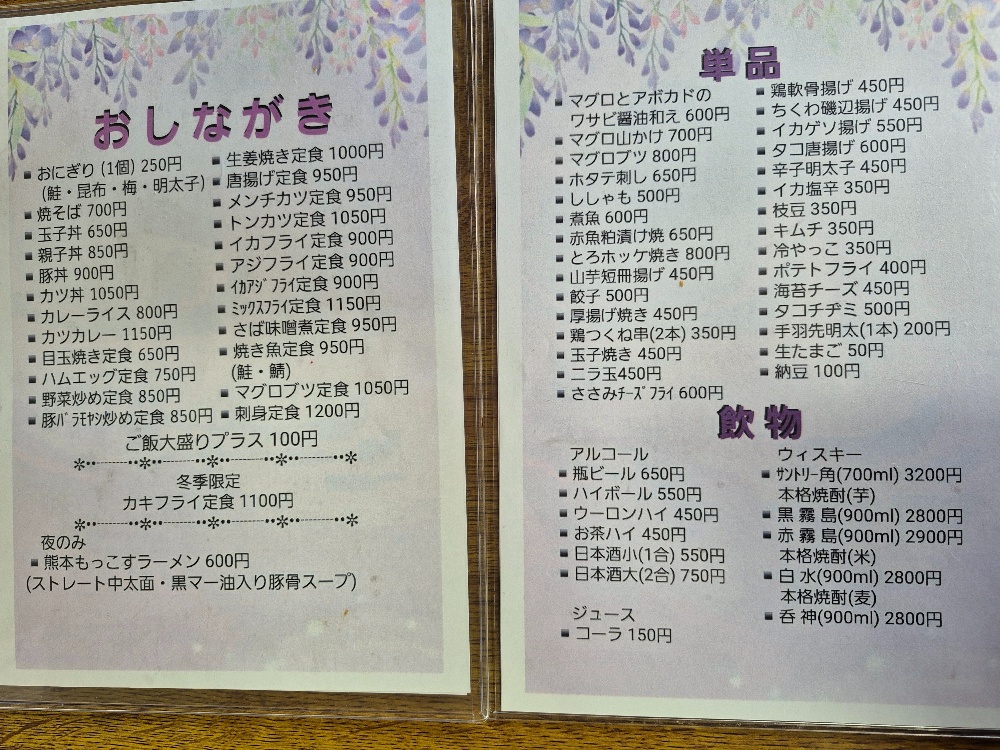 おしながき
▪おにぎり (1個) 250円
(鮭・昆布・梅・明太子)
▪焼そば 700円
▪玉子丼 650円
▪親子丼 850円
▪豚丼 900円
▪カツ丼 1050円
▪カレーライス 800円
▪カツカレー 1150円
▪目玉焼き定食 650円
▪ハムエッグ定食 750円
▪野菜炒め定食 850円
▪豚ﾊﾞﾗﾓﾔｼ炒め定食 850円
▪生姜焼き定食 1000円
▪唐揚げ定食 950円
▪メンチカツ定食 950円
▪トンカツ定食 1050円
▪イカフライ定食 900円
▪アジフライ定食 900円
▪ｲｶｱｼﾞﾌﾗｲ定食 900円
▪ﾐｯｸｽﾌﾗｲ定食 1150円
▪さば味噌煮定食 950円
▪焼き魚定食 950円
(鮭・鯖)
▪マグロブツ定食 1050円
▪刺身定食 1200円
ご飯大盛りプラス 100円
冬季限定
カキフライ定食 1100円
夜のみ
▪熊本もっこすラーメン 600円
(ストレート中太面・黒マー油入り豚骨スープ)
単品
▪マグロとアボカドの
ワサビ醤油和え 600円
▪マグロ山かけ 700円
▪マグロブツ 800円
▪ホタテ刺し 650円
▪ししゃも 500円
▪煮魚 600円
▪赤魚粕漬け焼 650円
▪とろホッケ焼き 800円
▪山芋短冊揚げ 450円
▪餃子 500円
▪厚揚げ焼き 450円
▪鶏つくね串(2本) 350円
▪玉子焼き 450円
▪ニラ玉450円
▪ささみﾁｰｽﾞﾌﾗｲ 600円
▪鶏軟骨揚げ 450円
▪ちくわ磯辺揚げ 450円
▪イカゲソ揚げ 550円
▪タコ唐揚げ 600円
▪辛子明太子 450円
▪イカ塩辛 350円
▪枝豆 350円
▪キムチ 350円
▪冷やっこ 350円
▪ポテトフライ 400円
▪海苔チーズ 450円
▪タコチヂミ 500円
▪手羽先明太(1本) 200円
▪生たまご 50円
▪納豆 100円
飲物
アルコール
▪瓶ビール 650円
▪ハイボール 550円
▪ウーロンハイ 450円
▪お茶ハイ 450円
▪日本酒小(1合) 550円
▪日本酒大(2合) 750円
ジュース
▪コーラ 150円
ウィスキー
▪ｻﾝﾄﾘｰ角(700ml) 3200円
本格焼酎(芋)
▪黒 霧 島(900ml) 2800円
▪赤 霧 島(900ml) 2900円
本格焼酎(米)
▪白 水(900ml) 2800円
本格焼酎(麦)
▪呑 神(900ml) 2800円